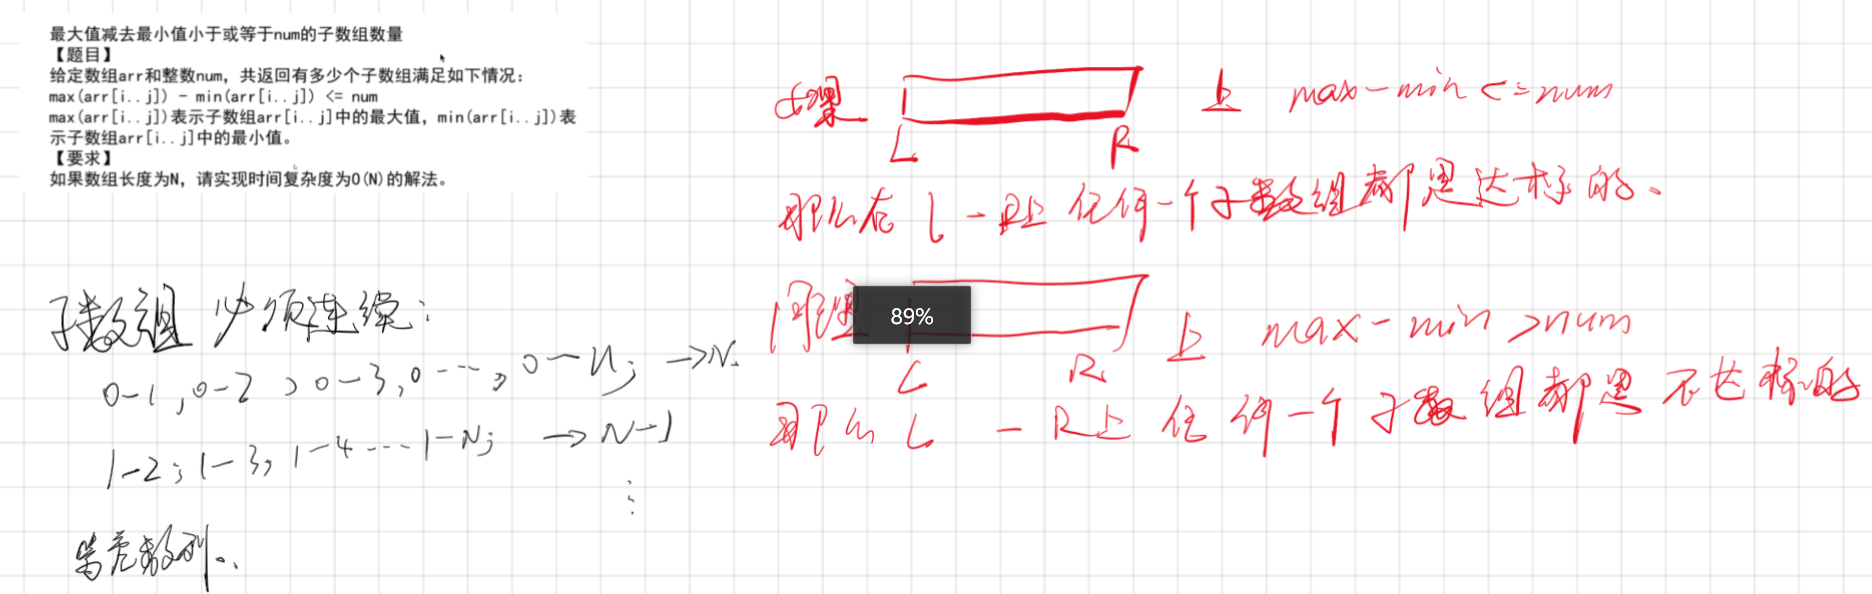 最大值减去最小值小于或等于num的子数组数量
【题目】
给定数组arr和整数num，共返回有多少个子数组满足如下情况：
max(arr[i..j]) - min(arr[i..j]) <= num
max(arr[i..j])表示子数组arr[i..j]中的最大值，min(arr[i..j])表
示子数组arr[i..j]中的最小值。
【要求】
如果数组长度为N，请实现时间复杂度为O(N)的解法。
子数组 必须连续：
0-1, 0-2, 0-3, 0 ---, 0-N; →N.
1-2; 1-3, 1-4 --- 1-N; → N-1
⋮
等差数列..
如果 上 max-min <=num
L R
那么在 L-R上 任何一个子数组都是达标的.
同理 上 max-min >num
L R
那么 L - R上 任何一个子数组都是不达标的
89%